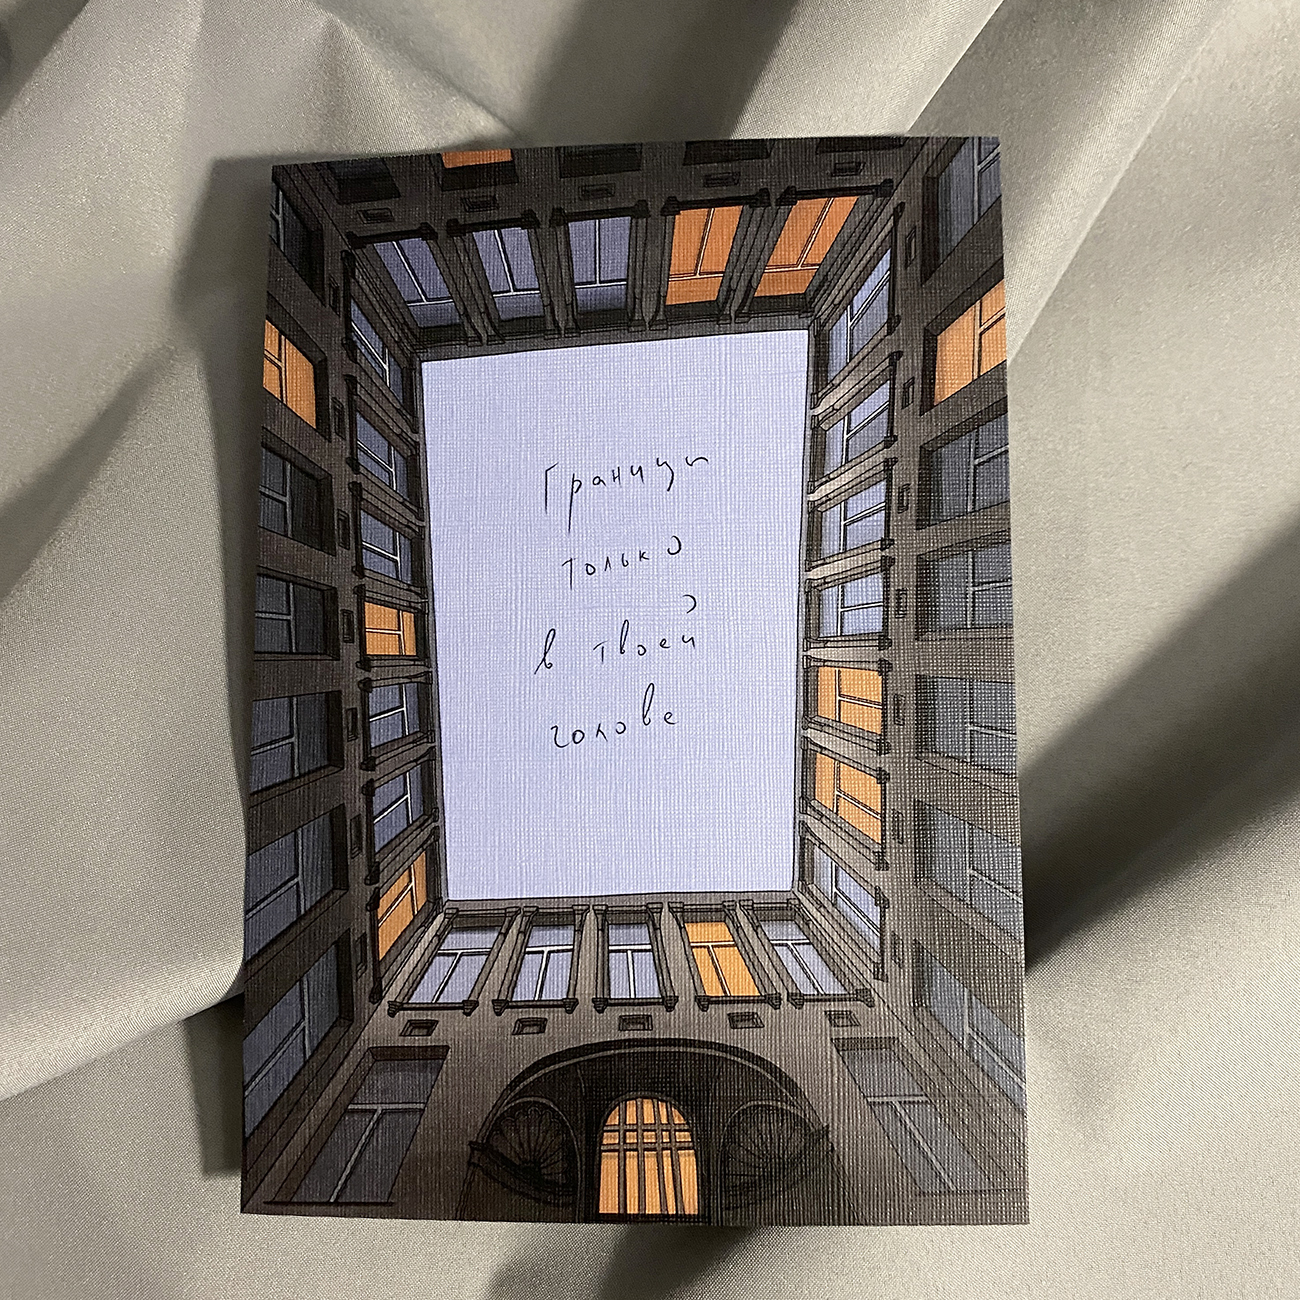 Границы
только
в твоей
голове